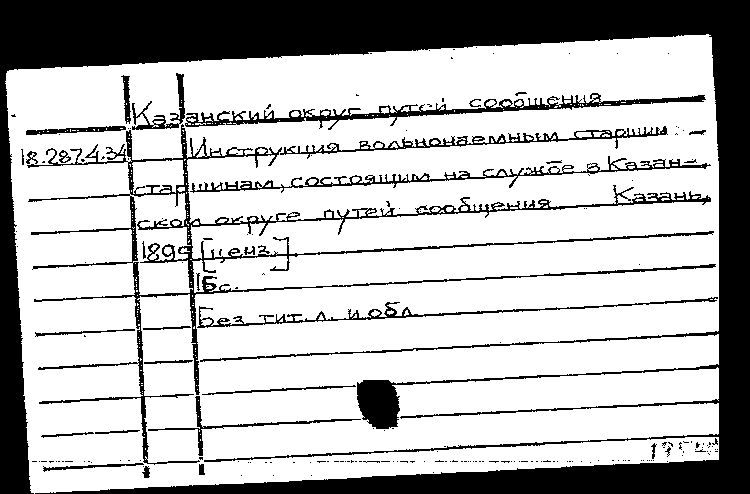 Казанский округ путей сообщения
18.287.4.34 Инструкция вольнонаемным старшим -
старшинам, состоящим на службе в Казан-
ском округе путей сообщения. Казань,
1899 [ценз.].
16с.
Без тит. л. и обл.